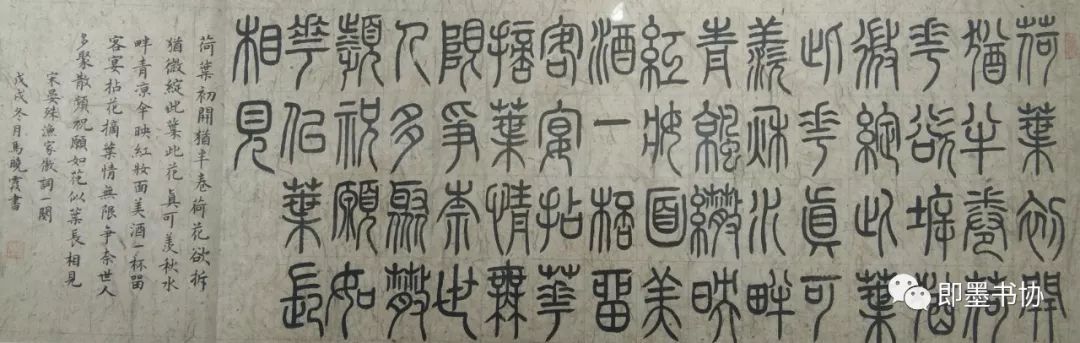 荷葉初開
猶半卷荷
花欲坼猶
微綻此葉
此花真可
羨秋水畔
青涼繖映
紅妝面美
酒一桮留
客宴拈花
摘葉情無
限爭奈世
人多聚散
頻祝願如
花似葉長
相見
荷葉初開猶半卷荷花欲拆
猶微綻此葉此花真可羨秋水
畔青凉傘映紅妝面美酒一杯留
客宴拈花摘葉情無限争奈世人
多聚散頻祝願如花似葉長相見
宋晏殊漁家傲詞一闋
戊戌冬月馬曉霞書
即墨书协